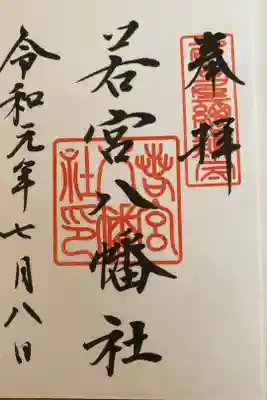 奉拝
若宮八幡社
若宮八幡社印
令和元年七月八日